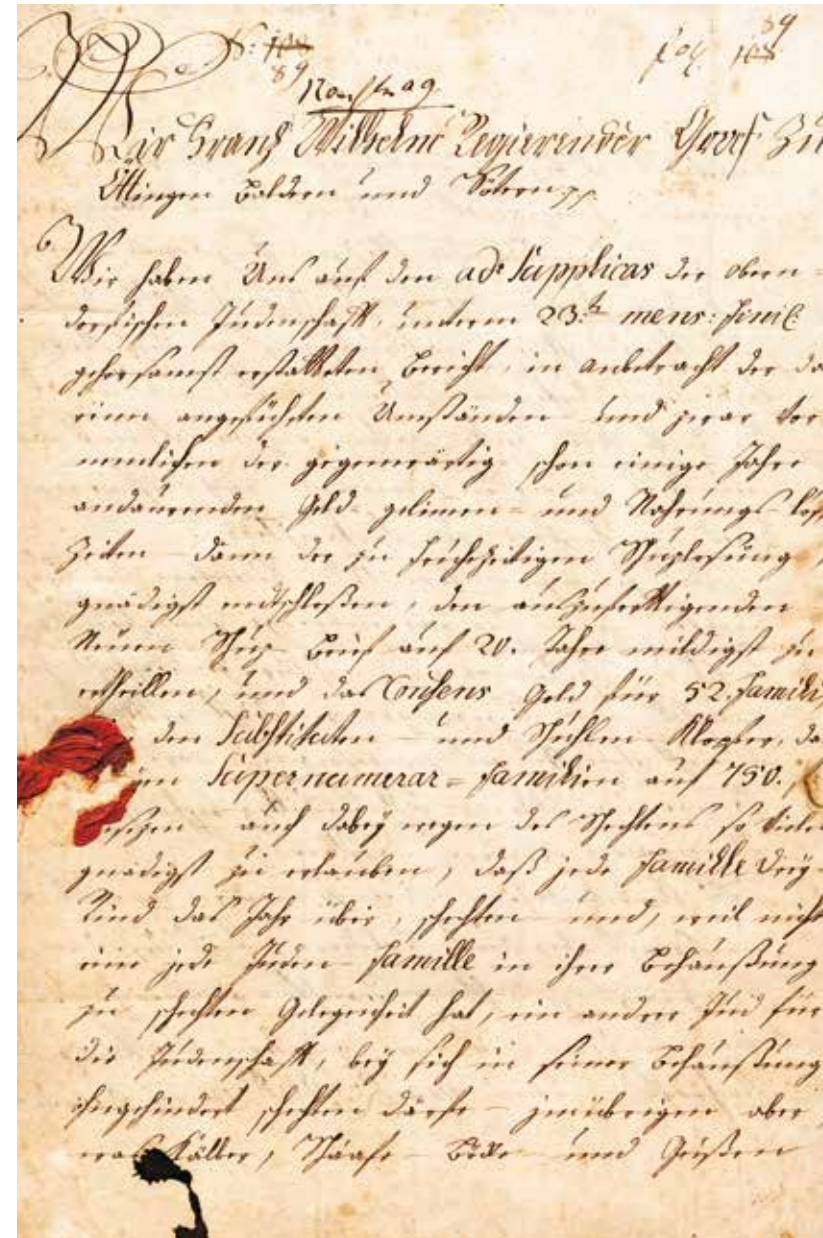 N: 108
89
fol. 108
89
Wir Frantz Wilhelm Regierender Graf zu
Öttingen Baldern und Sötern pp.
Wir haben Uns auf den ad Supplicas der obern=
dorfischen Judenschafft, unterm 23.t mens: Junii
gehorsamst erstatteten Bericht, in anbetracht der da
rinn angeführten Umständen und zwar vor
nemlichen der gegenwärtig schon einige Jahre
andaurenden Geld gelimen= und Nahrungs loß
Zeiten dann der zu fruhezeitigen Shuzlosung,
gnädigst entschloßen, den auszufertigenden
Neuen Shuz Brief auf 20. Jahr mildigst zu
ertheillen, und das Consens Geld für 52. Famili
den Substituten und Shuhlen Klopfer, da
Supernumerar=Familien auf 750.
sezen auch dabey wegen des Shechtens so viele
gnädigst zu erlauben, daß jede Famille drey
Rind das Jahr über, shechten und, weil nicht
eine jede Juden Famille in ihrer Behaußung
zu shechten Gelegenheit hat, ein andrer Jud für
die Judenschafft, bey sich in seiner Behaußung
ohngehindert shechten därfe – imübrigen aber
was Kälber, Shaafe Böcke und Geißen